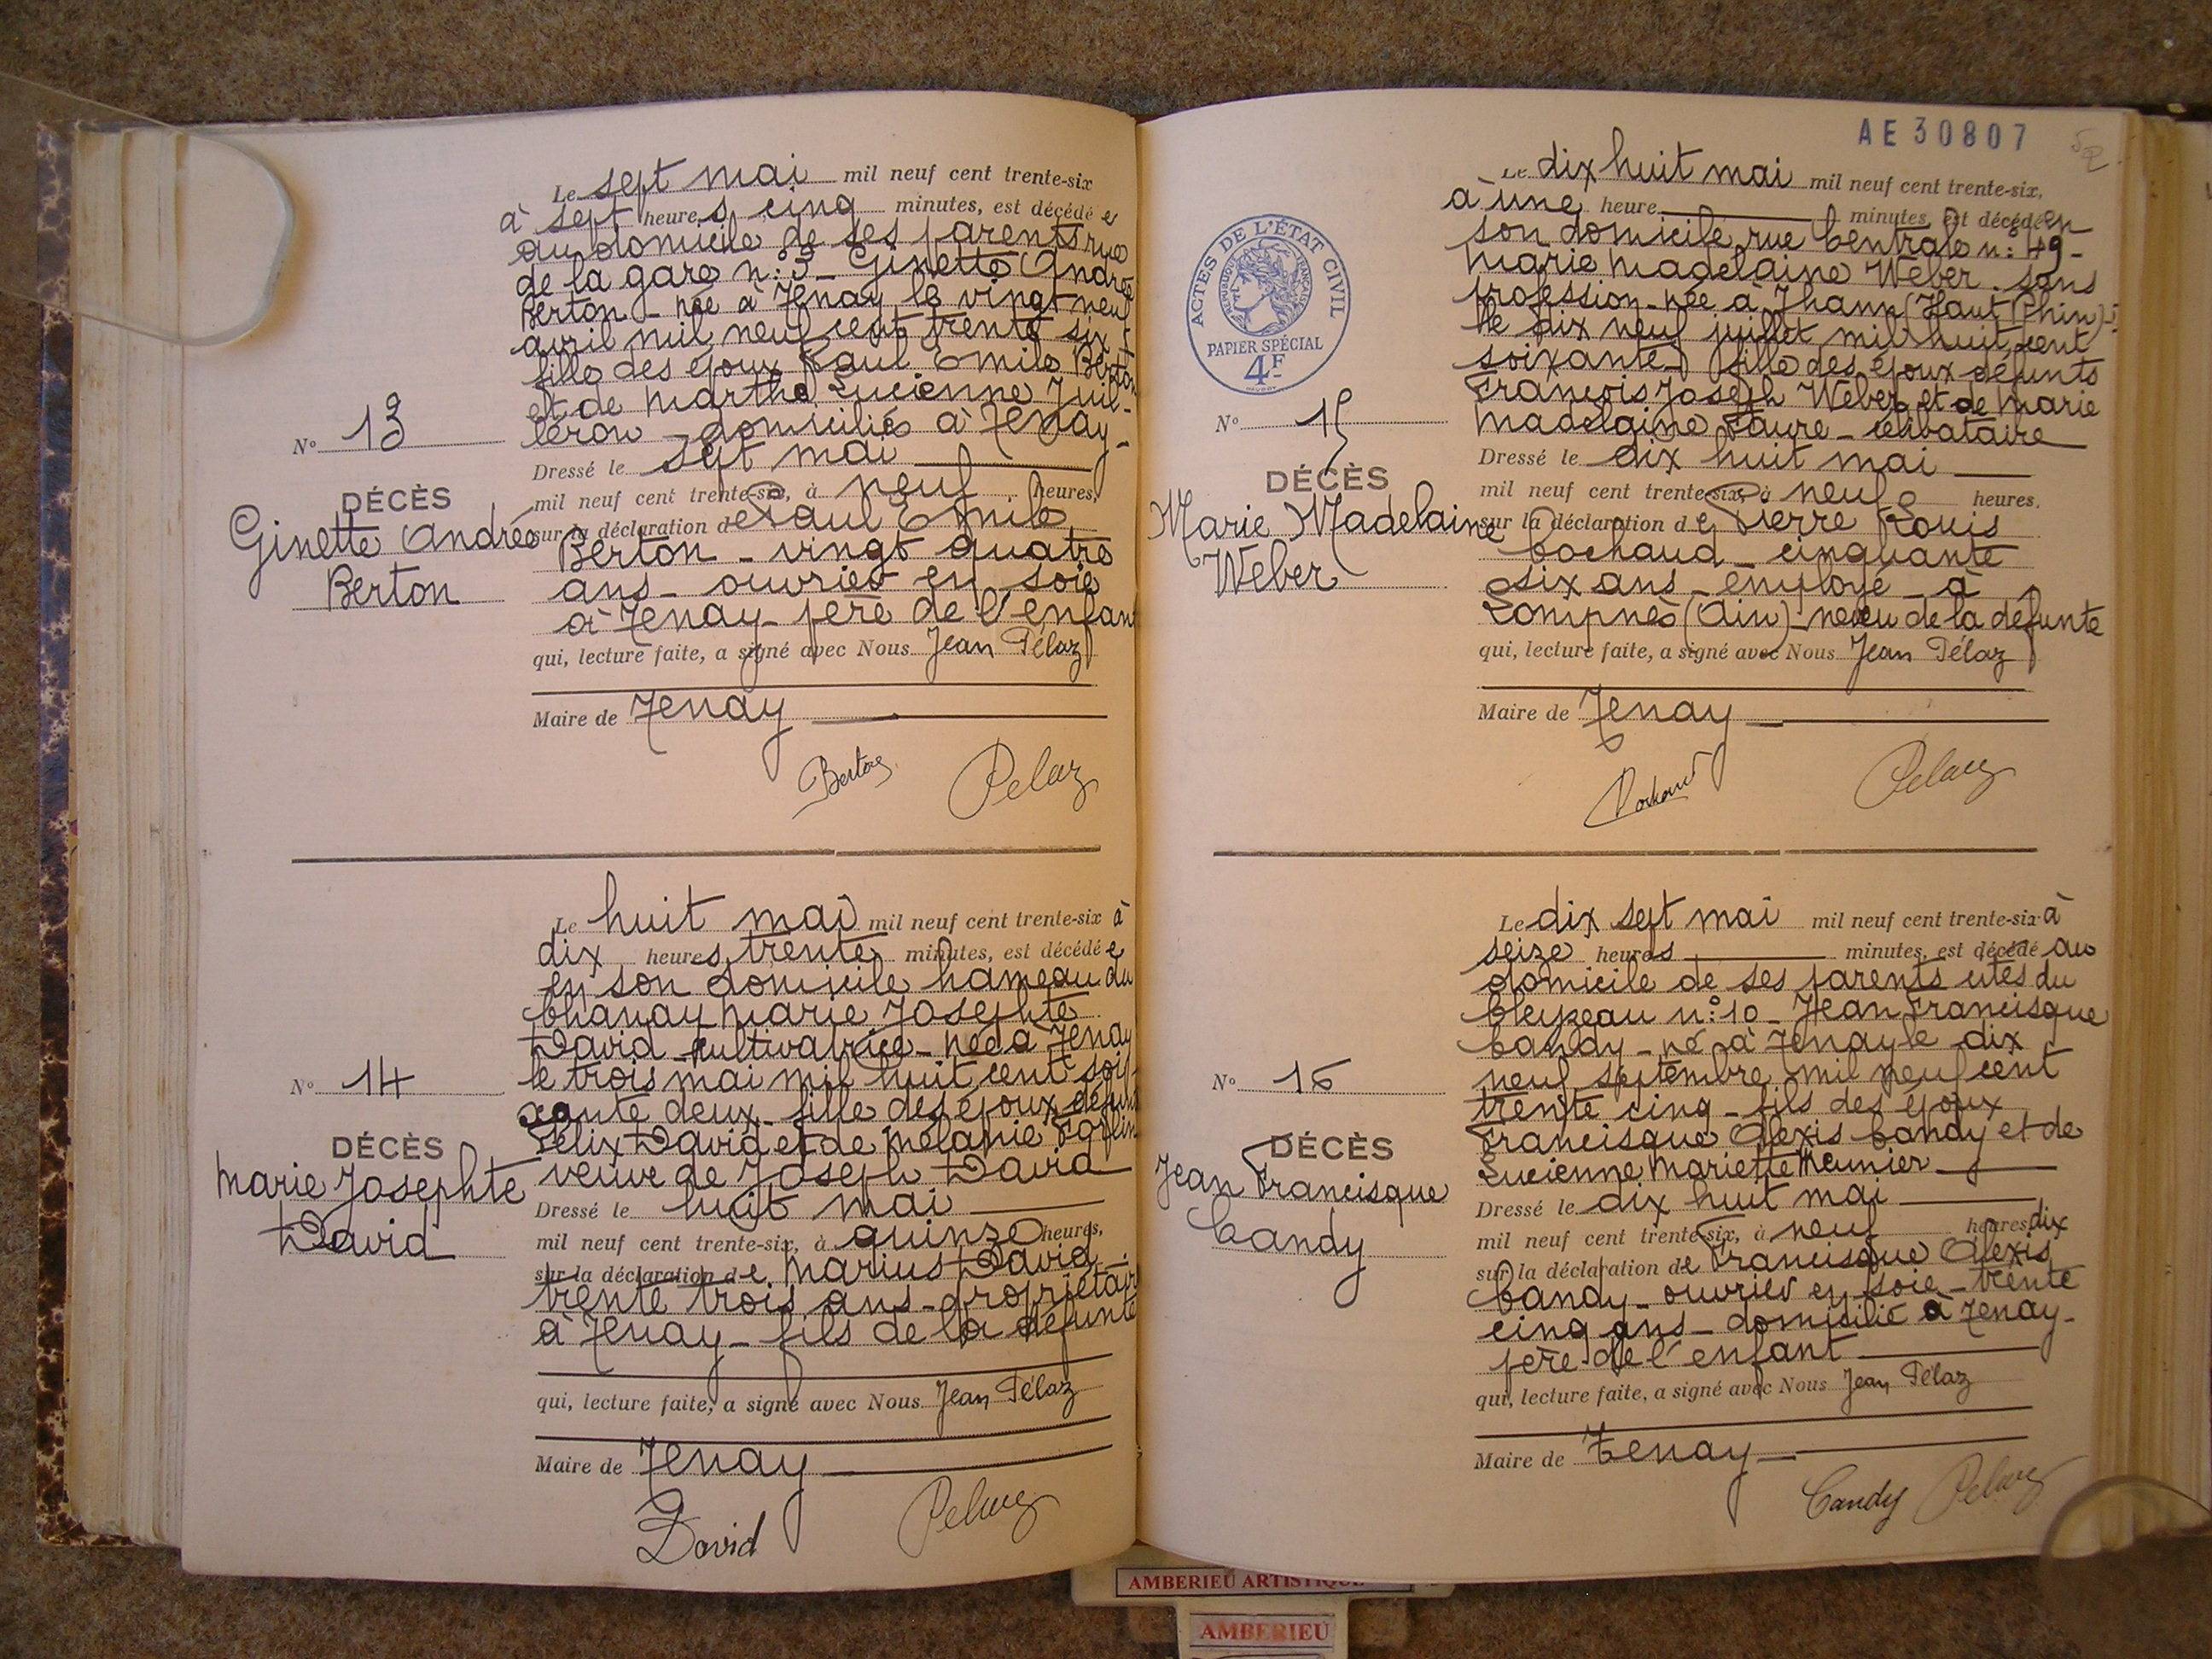 Le sept mai mil neuf cent trente-six
à sept heures cinq minutes, est décédée
au domicile de ses parents rue
de la gare n:3 _ Ginette Andrée
Berton _ née à Tenay le vingt neuf
avril mil neuf cent trente six
fille des époux Paul Emile Berton
et de Marthe Lucienne Juil-
leron _ domiciliés à Tenay _
N° 13
DÉCÈS
Ginette Andrée
Berton
Dressé le sept mai
mil neuf cent trente-six, à neuf heures,
sur la déclaration de Paul Emile
Berton _ vingt quatre
ans _ ouvrier en soie
à Tenay _ père de l'enfant
qui, lecture faite, a signé avec Nous Jean Pélaz
Maire de Tenay
Berton Pelaz
Le huit mai mil neuf cent trente-six à
dix heures trente minutes, est décédée
en son domicile hameau du
Chanay Marie Josephte
David _ cultivatrice _ née à Tenay
le trois mai mil huit cent soi-
xante deux _ fille des époux défunts
Félix David et de Mélanie
veuve de Joseph David
N° 14
DÉCÈS
Marie Josephte
David
Dressé le huit mai
mil neuf cent trente-six, à quinze heures,
sur la déclaration de Marius David _
trente trois ans _ propriétaire
à Tenay _ fils de la défunte
qui, lecture faite, a signé avec Nous Jean Pélaz
Maire de Tenay
David Pelaz
AE 30807
Le dix huit mai mil neuf cent trente-six,
à une heure minutes, est décédée en
son domicile rue Centrale n: 49 _
Marie Madelaine Weber _ sans
profession _ née à Thann (Haut Rhin)
le dix neuf juillet mil huit cent
soixante _ fille des époux défunts
François Joseph Weber et de Marie
Madelaine Faure _ célibataire
ACTES DE L'ÉTAT CIVIL
RÉPUBLIQUE FRANÇAISE
PAPIER SPÉCIAL
4F
N° 15
DÉCÈS
Marie Madelaine
Weber
Dressé le dix huit mai
mil neuf cent trente-six, à neuf heures,
sur la déclaration de Pierre Louis
Cochaud _ cinquante
six ans _ employé _ à
Lompnes (Ain) _ neveu de la défunte
qui, lecture faite, a signé avec Nous Jean Pélaz
Maire de Tenay
Cochaud Pelaz
Le dix sept mai mil neuf cent trente-six à
seize heures minutes, est décédé au
domicile de ses parents cités du
Cleyzeau n:10 _ Jean Francisque
Candy _ né à Tenay le dix
neuf septembre mil neuf cent
trente cinq _ fils des époux
Francisque Alexis Candy et de
Lucienne Mariette Meunier _
N° 16
DÉCÈS
Jean Francisque
Candy
Dressé le dix huit mai
mil neuf cent trente-six, à neuf heures dix
sur la déclaration de Francisque Alexis
Candy _ ouvrier en soie _ trente
cinq ans _ domicilié à Tenay _
père de l'enfant
qui, lecture faite, a signé avec Nous Jean Pélaz
Maire de Tenay
Candy Pelaz
AMBERIEU ARTISTIQUE
AMBERIEU